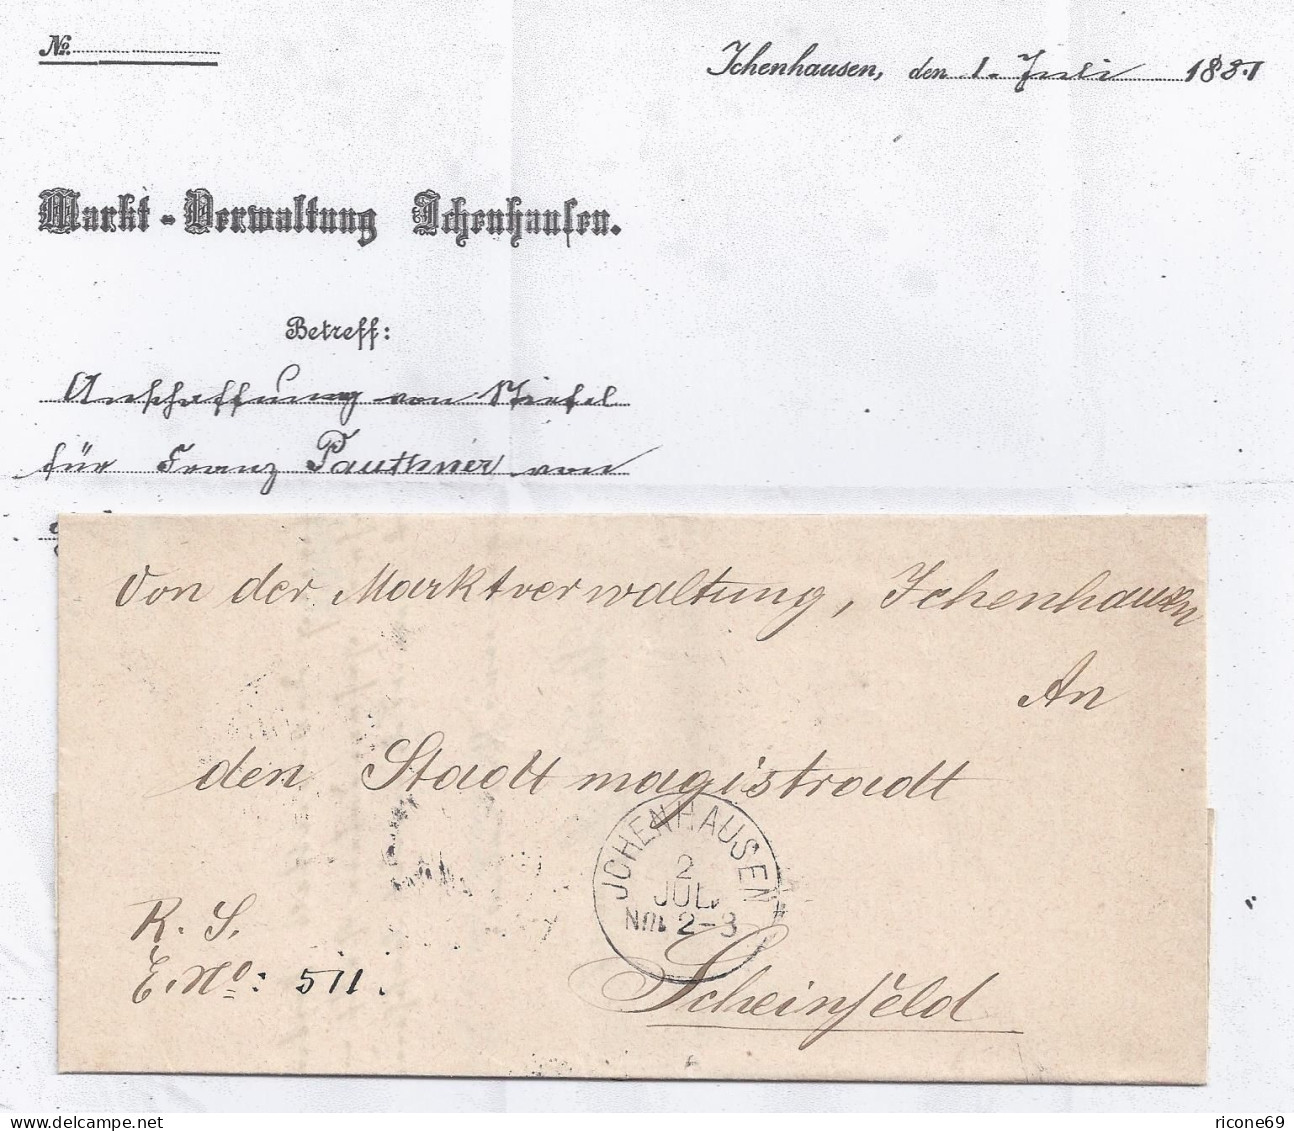 No.
Ichenhausen, den 1. Juli 1881
Markt-Verwaltung Ichenhausen.
Betreff:
Anschaffung von Stiefel
für Franz Pauthner von
Von der Marktverwaltung, Ichenhausen
An
den Stadtmagistradt
JCHENHAUSEN
2
JUL.
NM 2-3
R. S.
E. No: 511.
Scheinfeld
delcampe.net
ricone69